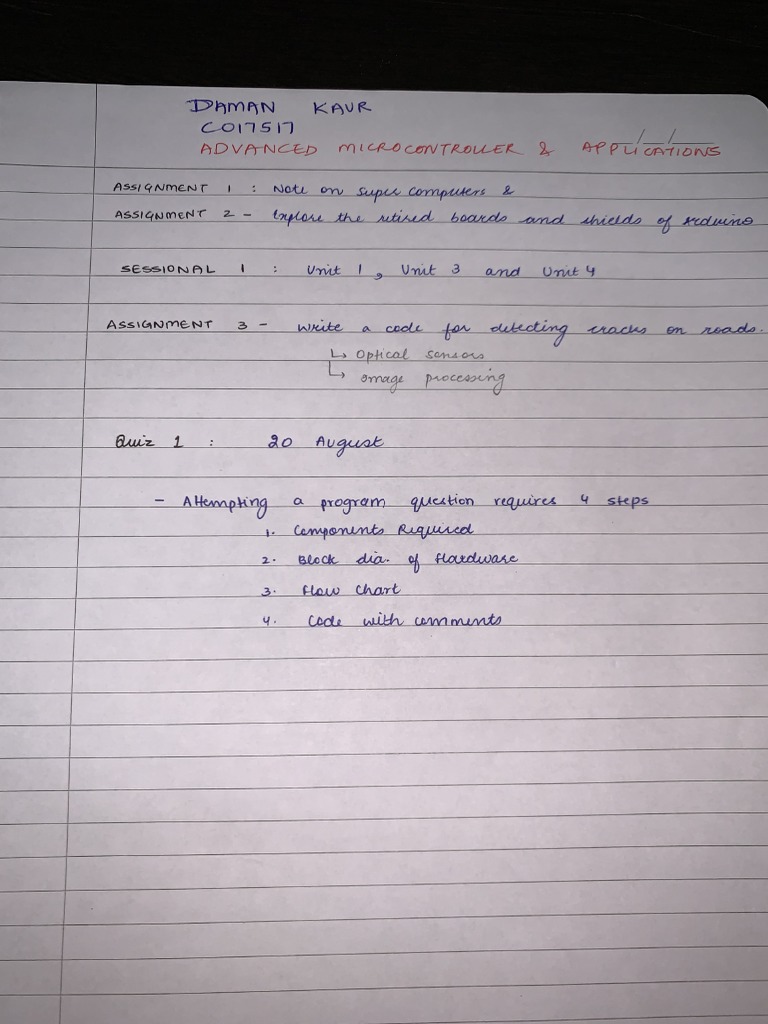 DAMAN KAUR
CO17517
ADVANCED MICROCONTROLLER & APPLICATIONS
ASSIGNMENT 1 : Note on super computers &
ASSIGNMENT 2 - Explore the retired boards and shields of Arduino
SESSIONAL 1 : Unit 1, Unit 3 and Unit 4
ASSIGNMENT 3 - Write a code for detecting cracks on roads.
↳ Optical sensors
↳ Image processing
Quiz 1 : 20 August
- Attempting a program question requires 4 steps
1. Components Required
2. Block dia. of Hardware
3. Flow Chart
4. Code with comments